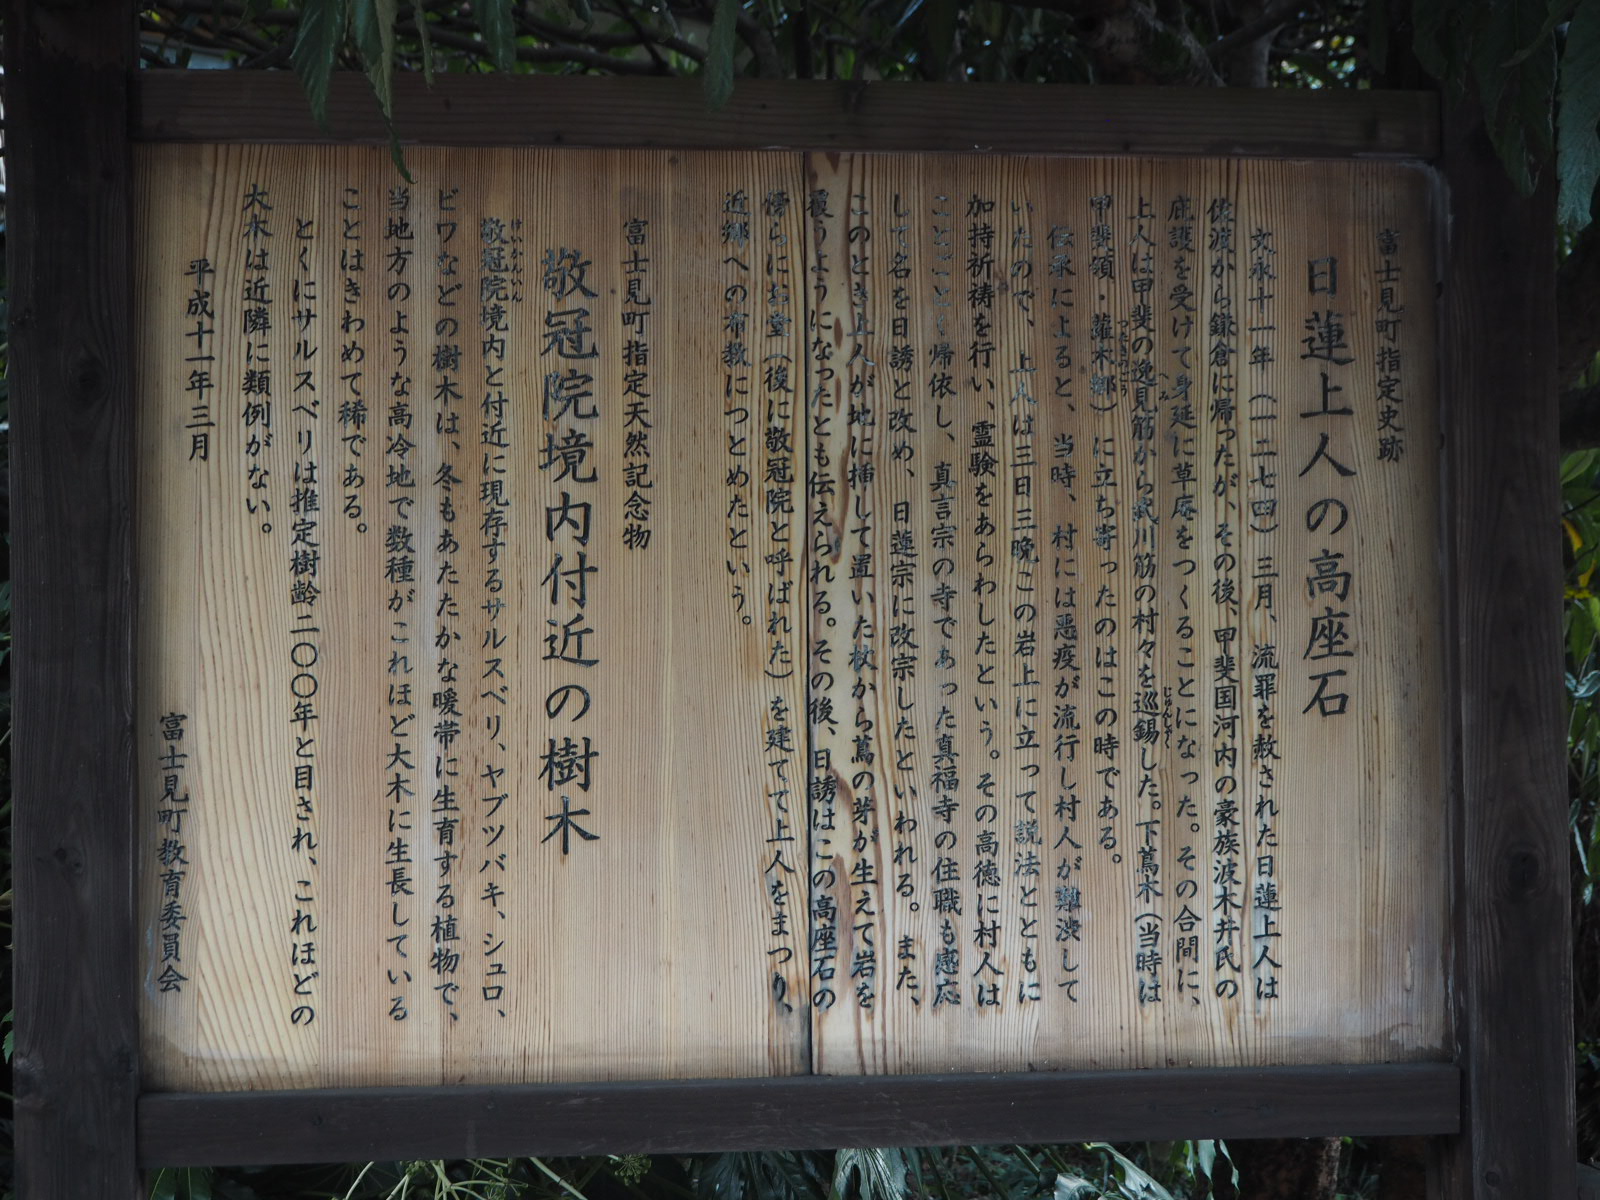 富士見町指定史跡
日蓮上人の高座石
文永十一年（一二七四）三月、流罪を赦された日蓮上人は
佐渡から鎌倉に帰ったが、その後、甲斐国河内の豪族波木井氏の
庇護を受けて身延に草庵をつくることになった。その合間に、
上人は甲斐の逸見筋から武川筋の村々を巡錫した。下蔦木（当時は
甲斐領・蘿木郷）に立ち寄ったのはこの時である。
伝承によると、当時、村には悪疫が流行し村人が難渋して
いたので、上人は三日三晩この岩上に立って説法とともに
加持祈祷を行い、霊験をあらわしたという。その高徳に村人は
ことごとく帰依し、真言宗の寺であった真福寺の住職も感応
して名を日誘と改め、日蓮宗に改宗したといわれる。また、
このとき上人が地に挿して置いた杖から蔦の芽が生えて岩を
覆うようになったとも伝えられる。その後、日誘はこの高座石の
傍らにお堂（後に敬冠院と呼ばれた）を建てて上人をまつり、
近郷への布教につとめたという。
富士見町指定天然記念物
敬冠院境内付近の樹木
敬冠院境内と付近に現存するサルスベリ、ヤブツバキ、シュロ、
ビワなどの樹木は、冬もあたたかな暖帯に生育する植物で、
当地方のような高冷地で数種がこれほど大木に生長している
ことはきわめて稀である。
とくにサルスベリは推定樹齢二〇〇年と目され、これほどの
大木は近隣に類例がない。
平成十一年三月
富士見町教育委員会